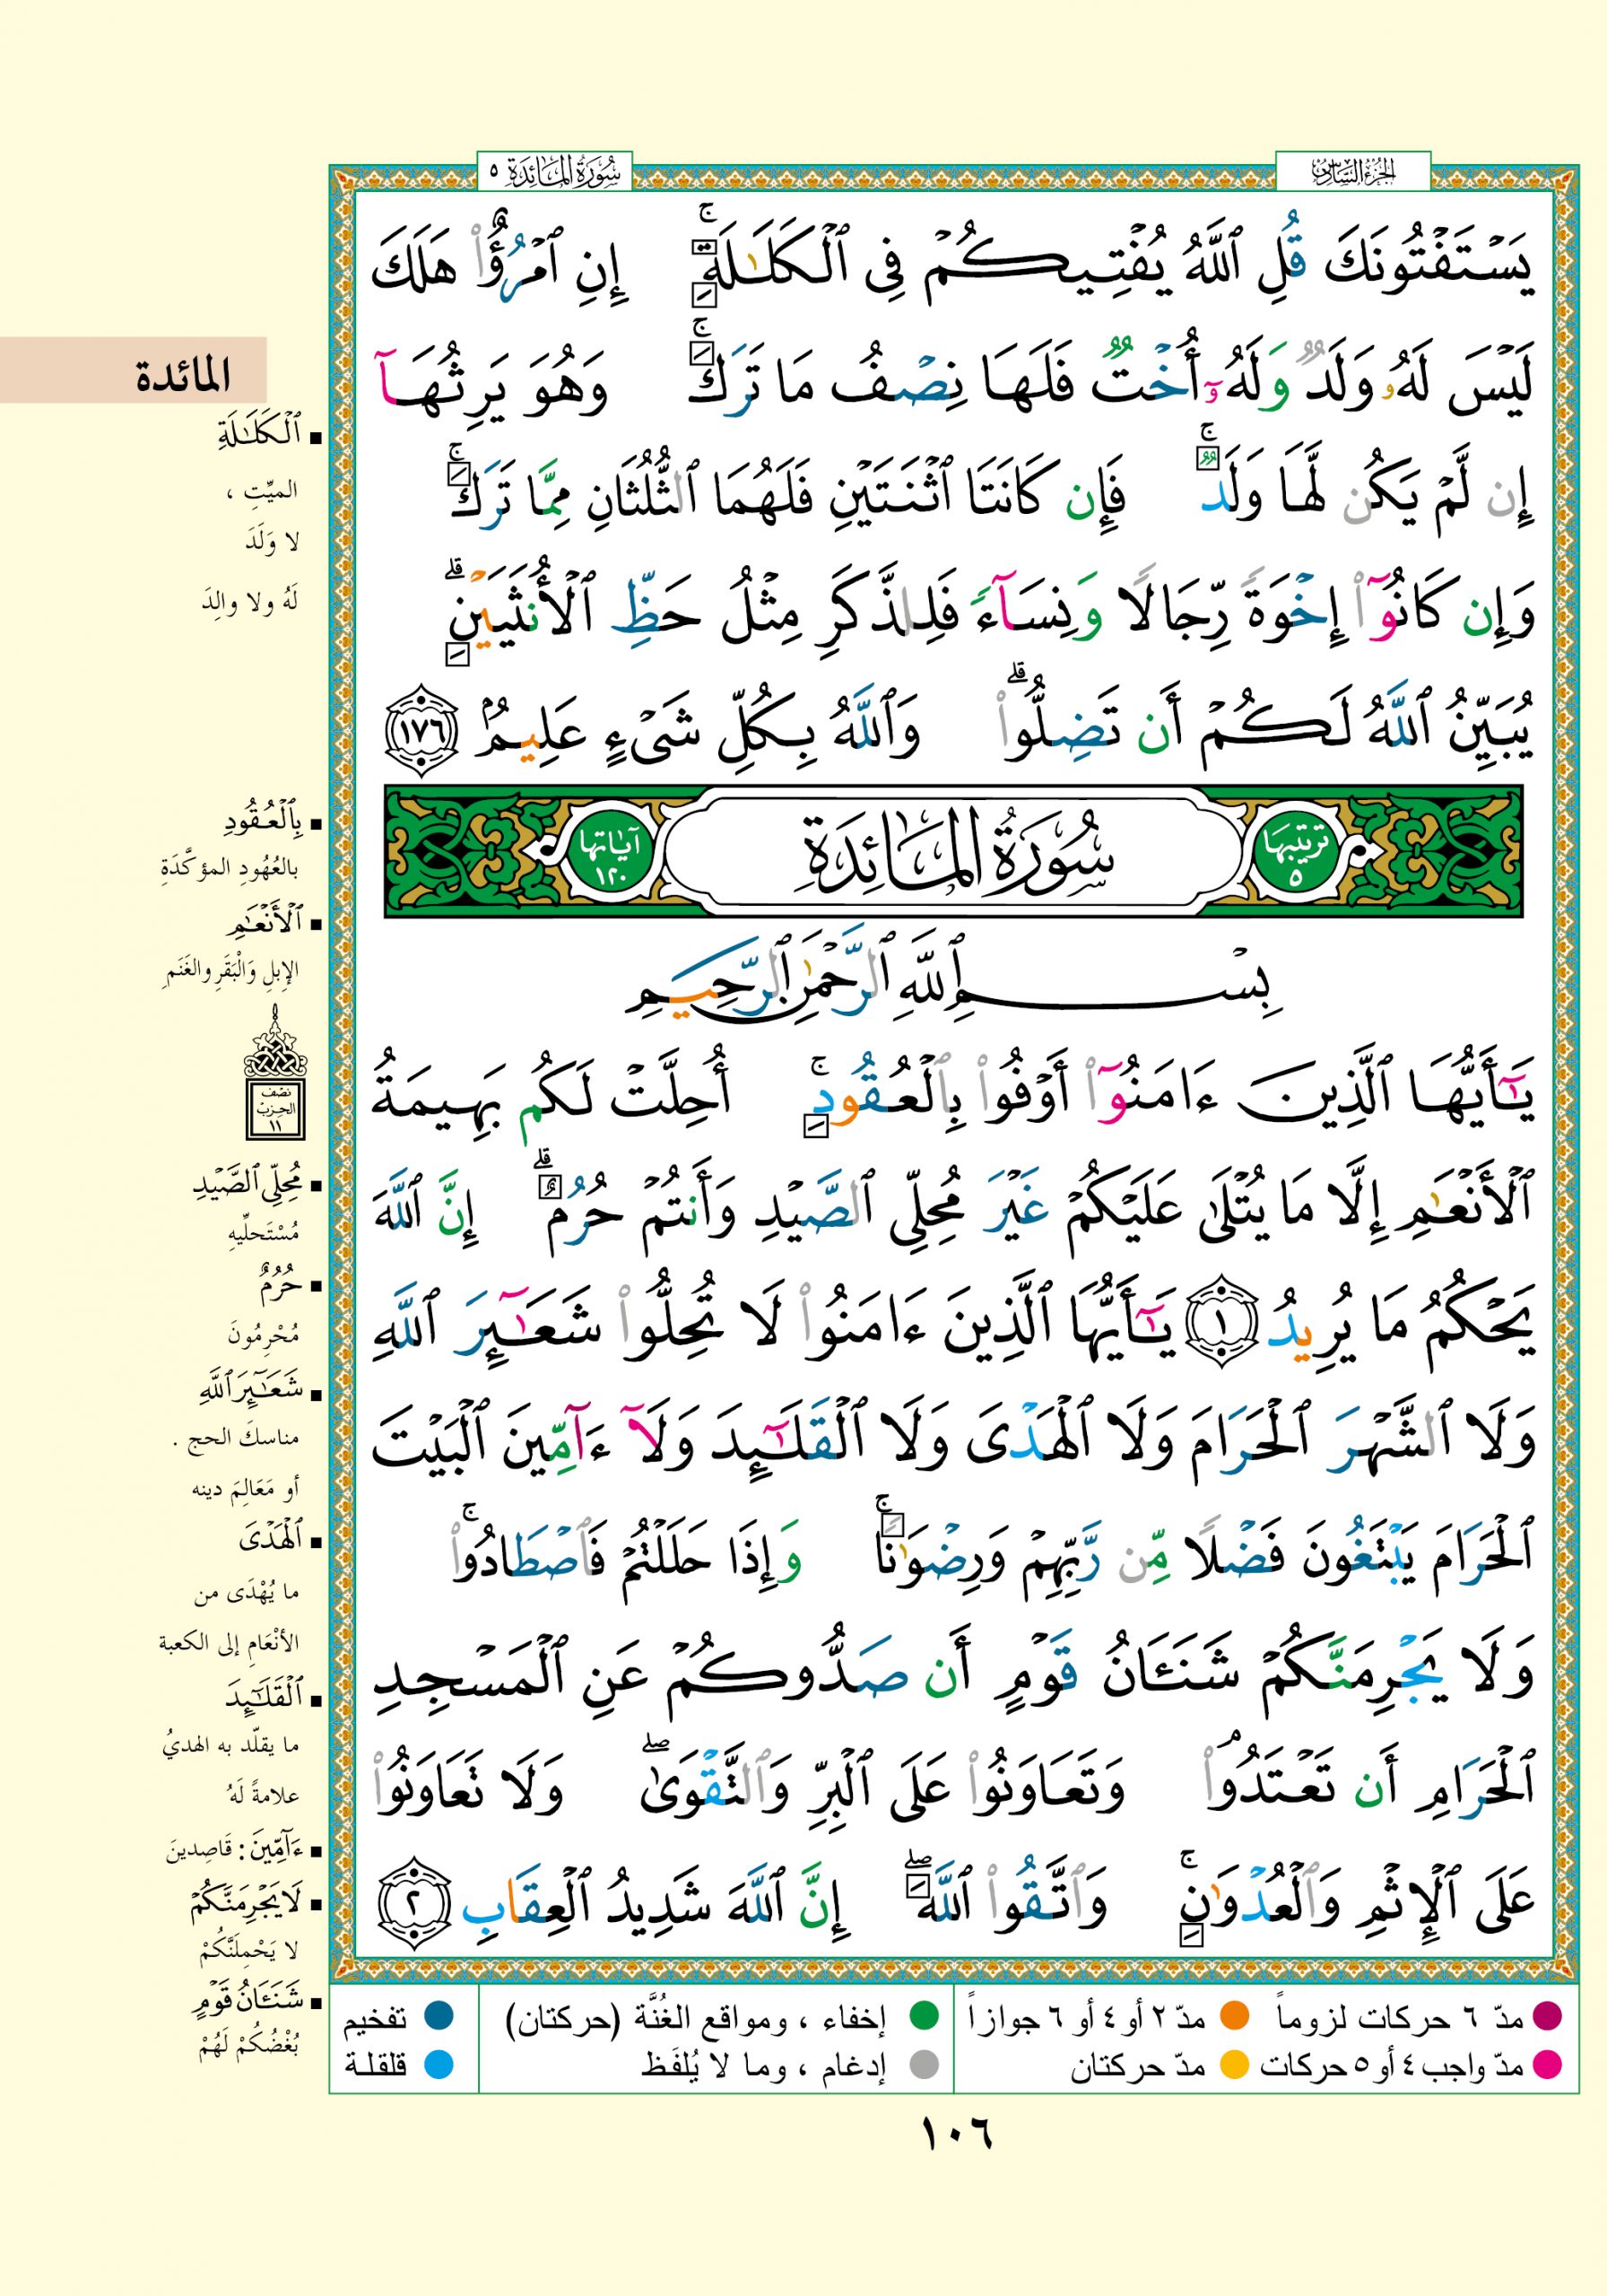 الجزء السادس
سورة المائدة ٥
يَسْتَفْتُونَكَ قُلِ ٱللَّهُ يُفْتِيكُمْ فِى ٱلْكَلَـٰلَةِ ۚ إِنِ ٱمْرُؤٌا۟ هَلَكَ
لَيْسَ لَهُۥ وَلَدٌ وَلَهُۥٓ أُخْتٌ فَلَهَا نِصْفُ مَا تَرَكَ ۚ وَهُوَ يَرِثُهَآ
إِن لَّمْ يَكُن لَّهَا وَلَدٌ ۚ فَإِن كَانَتَا ٱثْنَتَيْنِ فَلَهُمَا ٱلثُّلُثَانِ مِمَّا تَرَكَ ۚ
وَإِن كَانُوٓا۟ إِخْوَةً رِّجَالًا وَنِسَآءً فَلِلذَّكَرِ مِثْلُ حَظِّ ٱلْأُنثَيَيْنِ ۗ
يُبَيِّنُ ٱللَّهُ لَكُمْ أَن تَضِلُّوا۟ ۗ وَٱللَّهُ بِكُلِّ شَىْءٍ عَلِيمٌۢ ١٧٦
ترتيبها ٥ سُورَةُ المَائِدَةِ آياتها ١٢٠
بِسْمِ ٱللَّهِ ٱلرَّحْمَـٰنِ ٱلرَّحِيمِ
يَـٰٓأَيُّهَا ٱلَّذِينَ ءَامَنُوٓا۟ أَوْفُوا۟ بِٱلْعُقُودِ ۚ أُحِلَّتْ لَكُم بَهِيمَةُ
ٱلْأَنْعَـٰمِ إِلَّا مَا يُتْلَىٰ عَلَيْكُمْ غَيْرَ مُحِلِّى ٱلصَّيْدِ وَأَنتُمْ حُرُمٌ ۗ إِنَّ ٱللَّهَ
يَحْكُمُ مَا يُرِيدُ ١ يَـٰٓأَيُّهَا ٱلَّذِينَ ءَامَنُوا۟ لَا تُحِلُّوا۟ شَعَـٰٓئِرَ ٱللَّهِ
وَلَا ٱلشَّهْرَ ٱلْحَرَامَ وَلَا ٱلْهَدْىَ وَلَا ٱلْقَلَـٰٓئِدَ وَلَآ ءَآمِّينَ ٱلْبَيْتَ
ٱلْحَرَامَ يَبْتَغُونَ فَضْلًا مِّن رَّبِّهِمْ وَرِضْوَٰنًا ۚ وَإِذَا حَلَلْتُمْ فَٱصْطَادُوا۟ ۚ
وَلَا يَجْرِمَنَّكُمْ شَنَـَٔانُ قَوْمٍ أَن صَدُّوكُمْ عَنِ ٱلْمَسْجِدِ
ٱلْحَرَامِ أَن تَعْتَدُوا۟ ۘ وَتَعَاوَنُوا۟ عَلَى ٱلْبِرِّ وَٱلتَّقْوَىٰ ۖ وَلَا تَعَاوَنُوا۟
عَلَى ٱلْإِثْمِ وَٱلْعُدْوَٰنِ ۚ وَٱتَّقُوا۟ ٱللَّهَ ۖ إِنَّ ٱللَّهَ شَدِيدُ ٱلْعِقَابِ ٢
المائدة
ٱلْكَلَـٰلَةِ
الميِّتِ ،
لا وَلَدَ
لَهُ ولا والِدَ
بِٱلْعُقُودِ
بالعُهُودِ المؤكَّدَةِ
ٱلْأَنْعَـٰمِ
الإبلِ وَالْبَقَرِ والغَنَمِ
نصف
الحزب
١١
مُحِلِّى ٱلصَّيْدِ
مُسْتَحلِّيهِ
حُرُمٌ
مُحْرِمُونَ
شَعَـٰٓئِرَ ٱللَّهِ
مناسكَ الحج .
أو مَعَالِمَ دينه
ٱلْهَدْىَ
ما يُهْدَى من
الأنْعَامِ إلى الكعبة
ٱلْقَلَـٰٓئِدَ
ما يقلّد به الهديُ
علامةً لَهُ
ءَآمِّينَ : قَاصِدينَ
لَا يَجْرِمَنَّكُمْ
لا يَحْمِلَنَّكُمْ
شَنَـَٔانُ قَوْمٍ
بُغْضُكُمْ لَهُمْ
مدّ ٦ حركات لزوماً مدّ ٢ أو ٤ أو ٦ جوازاً إخفاء ، ومواقع الغُنَّة (حركتان) تفخيم
مدّ واجب ٤ أو ٥ حركات مدّ حركتان إدغام ، وما لا يُلفَظ قلقلة
١٠٦